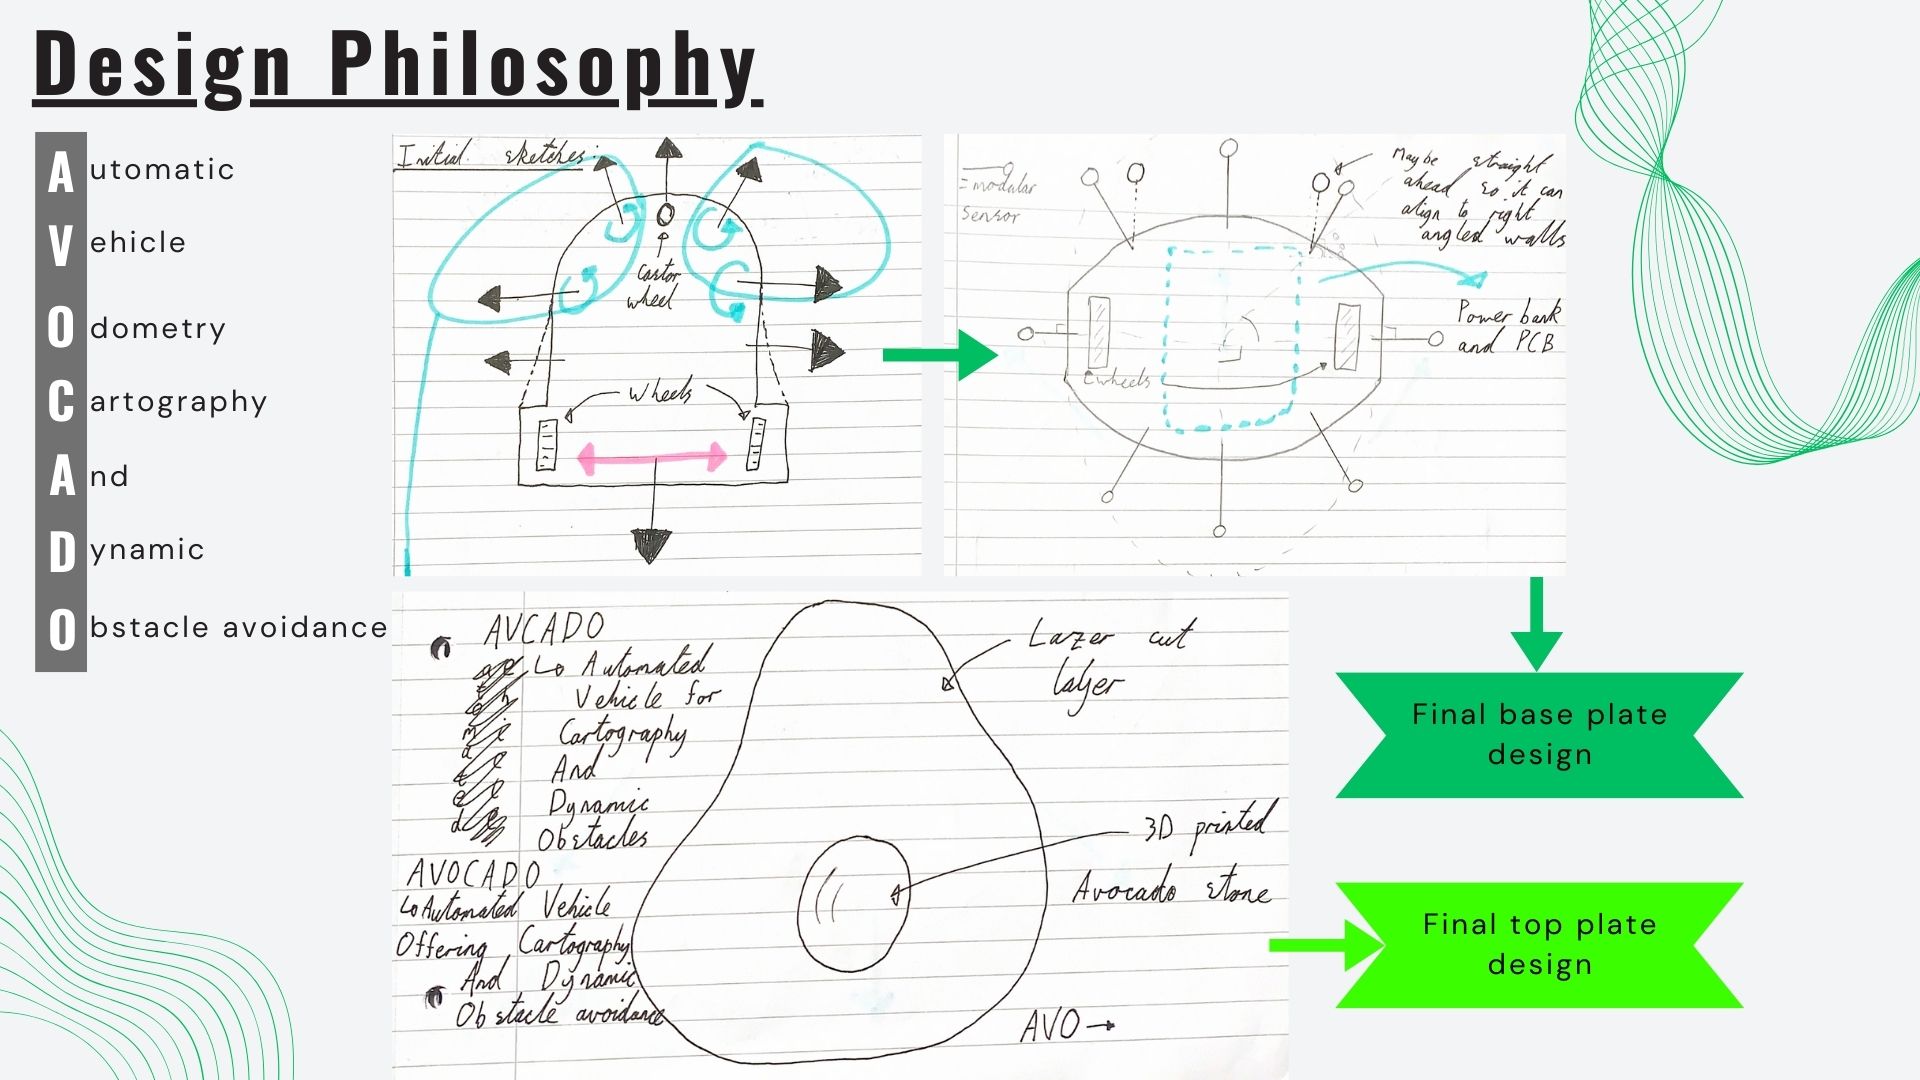 Design Philosophy
Automatic
Vehicle
Odometry
Cartography
And
Dynamic
Obstacle avoidance
Initial sketches:
Castor
wheel
Wheels
= modular
sensor
Maybe straight
ahead so it can
align to right
angled walls
Power bank
and PCB
wheels
AVCADO
↳ Automated
Vehicle for
Cartography
And
Dynamic
Obstacles
AVOCADO
↳ Automated Vehicle
Offering Cartography
And Dynamic
Obstacle avoidance
Lazer cut
layer
3D printed
Avocado stone
AVO →
Final base plate
design
Final top plate
design